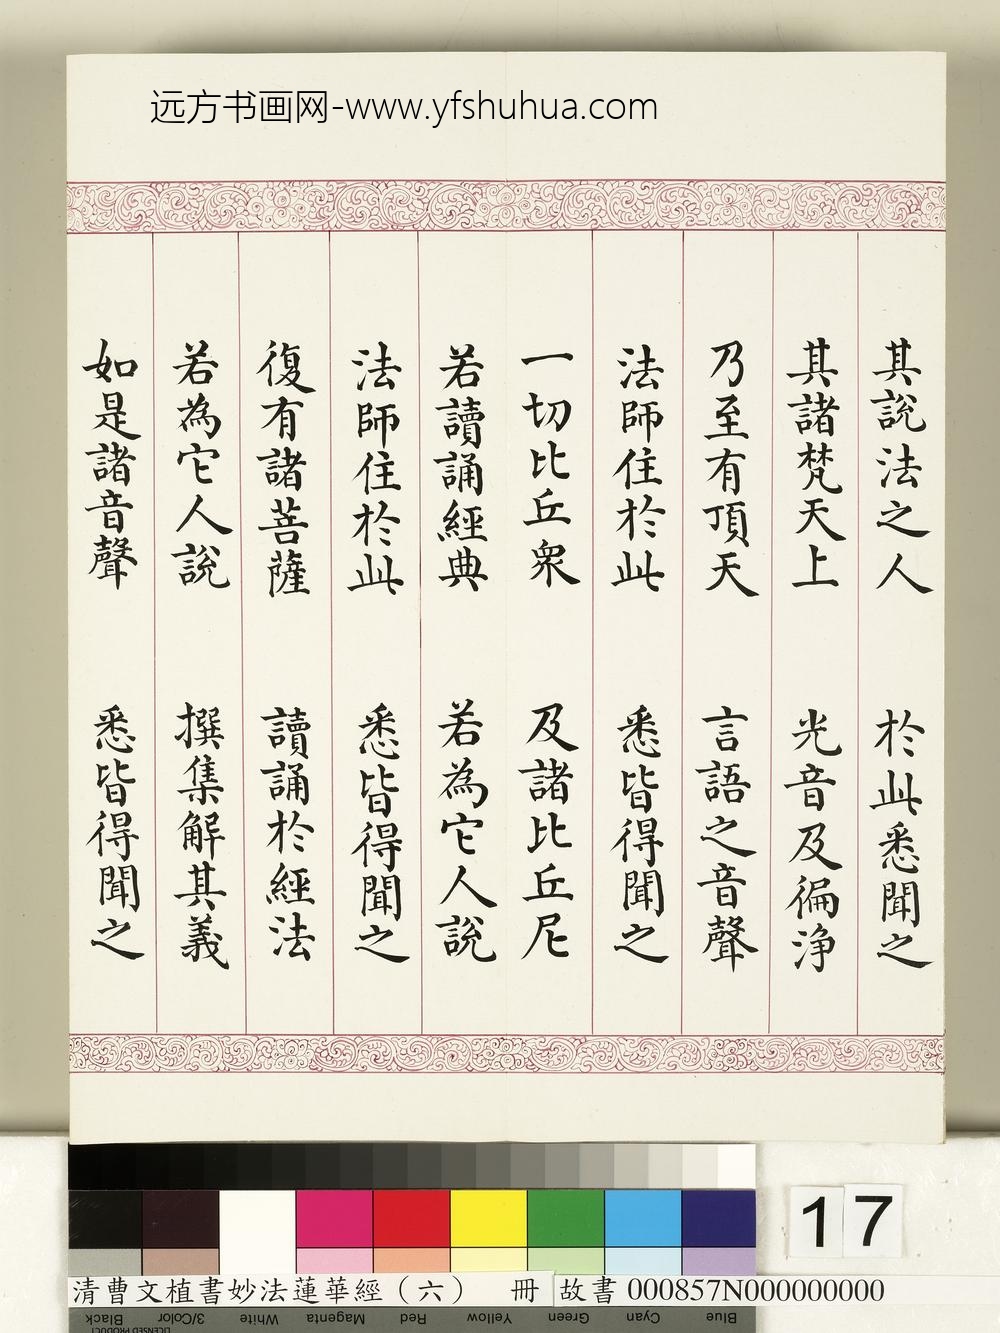 远方书画网-www.yfshuhua.com
其說法之人 於此悉聞之
其諸梵天上 光音及徧淨
乃至有頂天 言語之音聲
法師住於此 悉皆得聞之
一切比丘眾 及諸比丘尼
若讀誦經典 若為它人說
法師住於此 悉皆得聞之
復有諸菩薩 讀誦於經法
若為它人說 撰集解其義
如是諸音聲 悉皆得聞之
17
清曹文植書妙法蓮華經（六） 冊 故書 000857N000000000
Black 3/Color White Magenta Red Yellow Green Cyan Blue
LICENSED PRODUCT